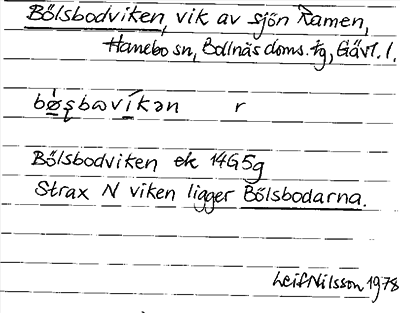 Bölsbodviken, vik av sjön Ramen,
Hanebo sn, Bollnäs doms. tg, Gävl. l.
bø̀şbωvíkən r
Bölsbodviken ek 14G5g
Strax N viken ligger Bölsbodarna.
Leif Nilsson 1978